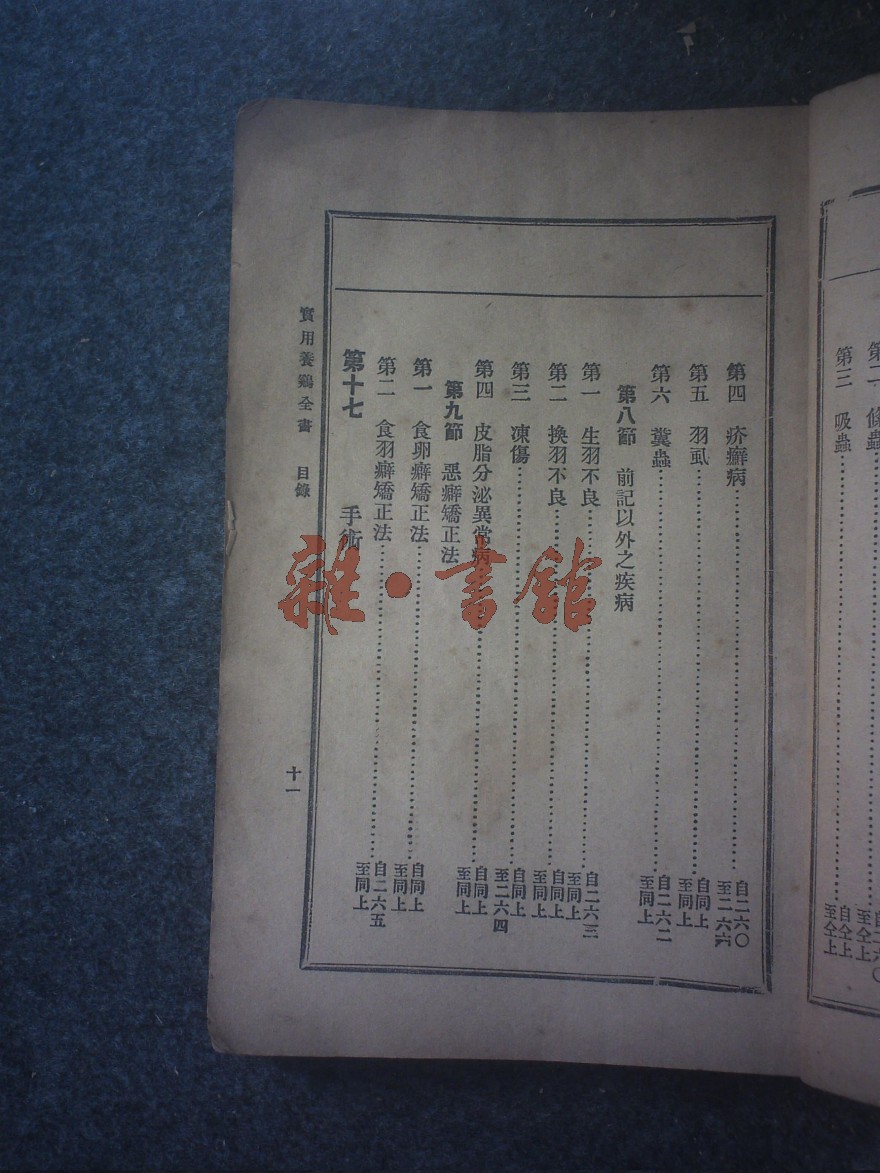 第二 條蟲
自二六〇
至仝上
第三 吸蟲
自仝上
至仝上
第四 疥癬病
自二六〇
至二六六
第五 羽虱
自同上
至同上
第六 糞蟲
自二六二
至同上
第八節 前記以外之疾病
第一 生羽不良
自二六三
至同上
第二 換羽不良
自同上
至同上
第三 凍傷
自同上
至二六四
第四 皮脂分泌異常病
自同上
至同上
第九節 惡癖矯正法
第一 食卵癖矯正法
自同上
至同上
第二 食羽癖矯正法
自二六五
至同上
第十七 手術
實用養鷄全書 目錄
十一
雜·書館